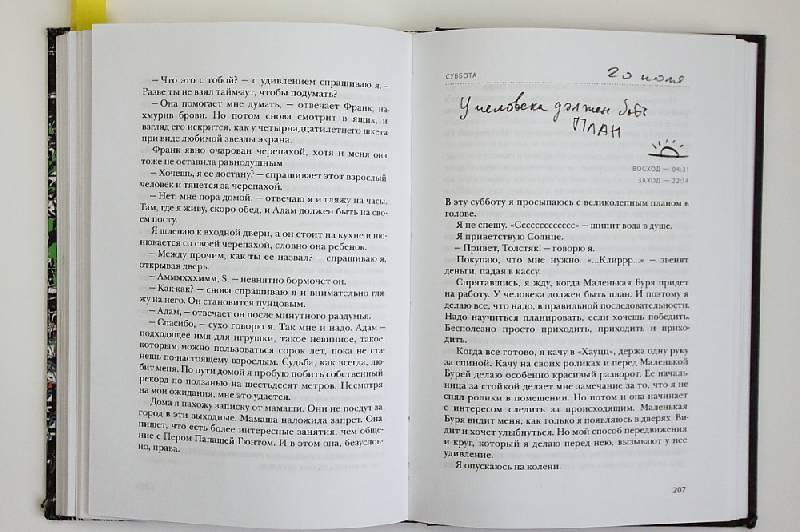 — Что это с тобой? — с удивлением спрашиваю я. —
Разве ты не взял таймаут, чтобы подумать?
— Она помогает мне думать, — отвечает Франк, на-
хмурив брови. Но потом снова смотрит в ящик, и
взгляд его искрится, как у четырнадцатилетнего шкета
при виде любимой звезды экрана.
Франк явно очарован черепахой, хотя и меня она
тоже не оставила равнодушным.
— Хочешь, я ее достану? — спрашивает этот взрослый
человек и тянется за черепахой.
— Нет, мне пора домой, — отвечаю я и гляжу на часы.
Там, где я живу, скоро обед, и Адам должен быть на сво-
ем посту.
Я шлепаю к входной двери, а он стоит на кухне и
нянькается со своей черепахой, словно она ребенок.
— Между прочим, как ты ее назвал? — спрашиваю я,
открывая дверь.
— Амммхххимм, S. — невнятно бормочет он.
— Как-как? — снова спрашиваю я и внимательно гля-
жу на него. Он становится пунцовым.
— Адам, — отвечает он после минутного раздумья.
— Спасибо, — сухо говорю я. Так мне и надо. Адам —
подходящее имя для игрушки, такое невинное, такое,
которым можно пользоваться сорок лет, пока не ста-
нешь по-настоящему взрослым. Судьба, как всегда, лю-
бит меня. По пути домой я пробую побить собственный
рекорд по ползанью на шестьдесят метров. Несмотря
на мои ожидания, мне это удается.
Дома я нахожу записку от мамаши. Они не поедут за
город в эти выходные. Мамаша наложила запрет. Она
пишет, что есть более интересные занятия, чем обще-
ние с Пером Палашей Гюнтом. И в этом она, безуслов-
но, права.
СУББОТА
20 июля
У человека должен быть
ПЛАН
ВОСХОД — 04:31
ЗАХОД — 22:14
В эту субботу я просыпаюсь с великолепным планом в
голове.
Я не спешу. «Сссссссссссс» — шипит вода в душе.
Я приветствую Солнце.
— Привет, Толстяк, — говорю я.
Покупаю, что мне нужно. «...Клиррр...» — звенят
деньги, падая в кассу.
Спрятавшись, я жду, когда Маленькая Буря придет
на работу. У человека должен быть план. И поэтому я
делаю все, что надо, в правильной последовательности.
Надо научиться планировать, если хочешь победить.
Бесполезно просто приходить, приходить и прихо-
дить.
Когда все готово, я качу в «Хауц», держа одну руку
за спиной. Качу на своих роликах и перед Маленькой
Бурей делаю особенно красивый разворот. Ее началь-
ница за стойкой делает мне замечание за то, что я не
снял ролики в помещении. Но потом и она начинает
с интересом следить за происходящим. Маленькая
Буря видит меня, как только я появляюсь в дверях. Ви-
дит и хочет улыбнуться. Но мой способ передвижения
и круг, который я делаю перед нею, вызывают у нее
удивление.
Я опускаюсь на колени.
207